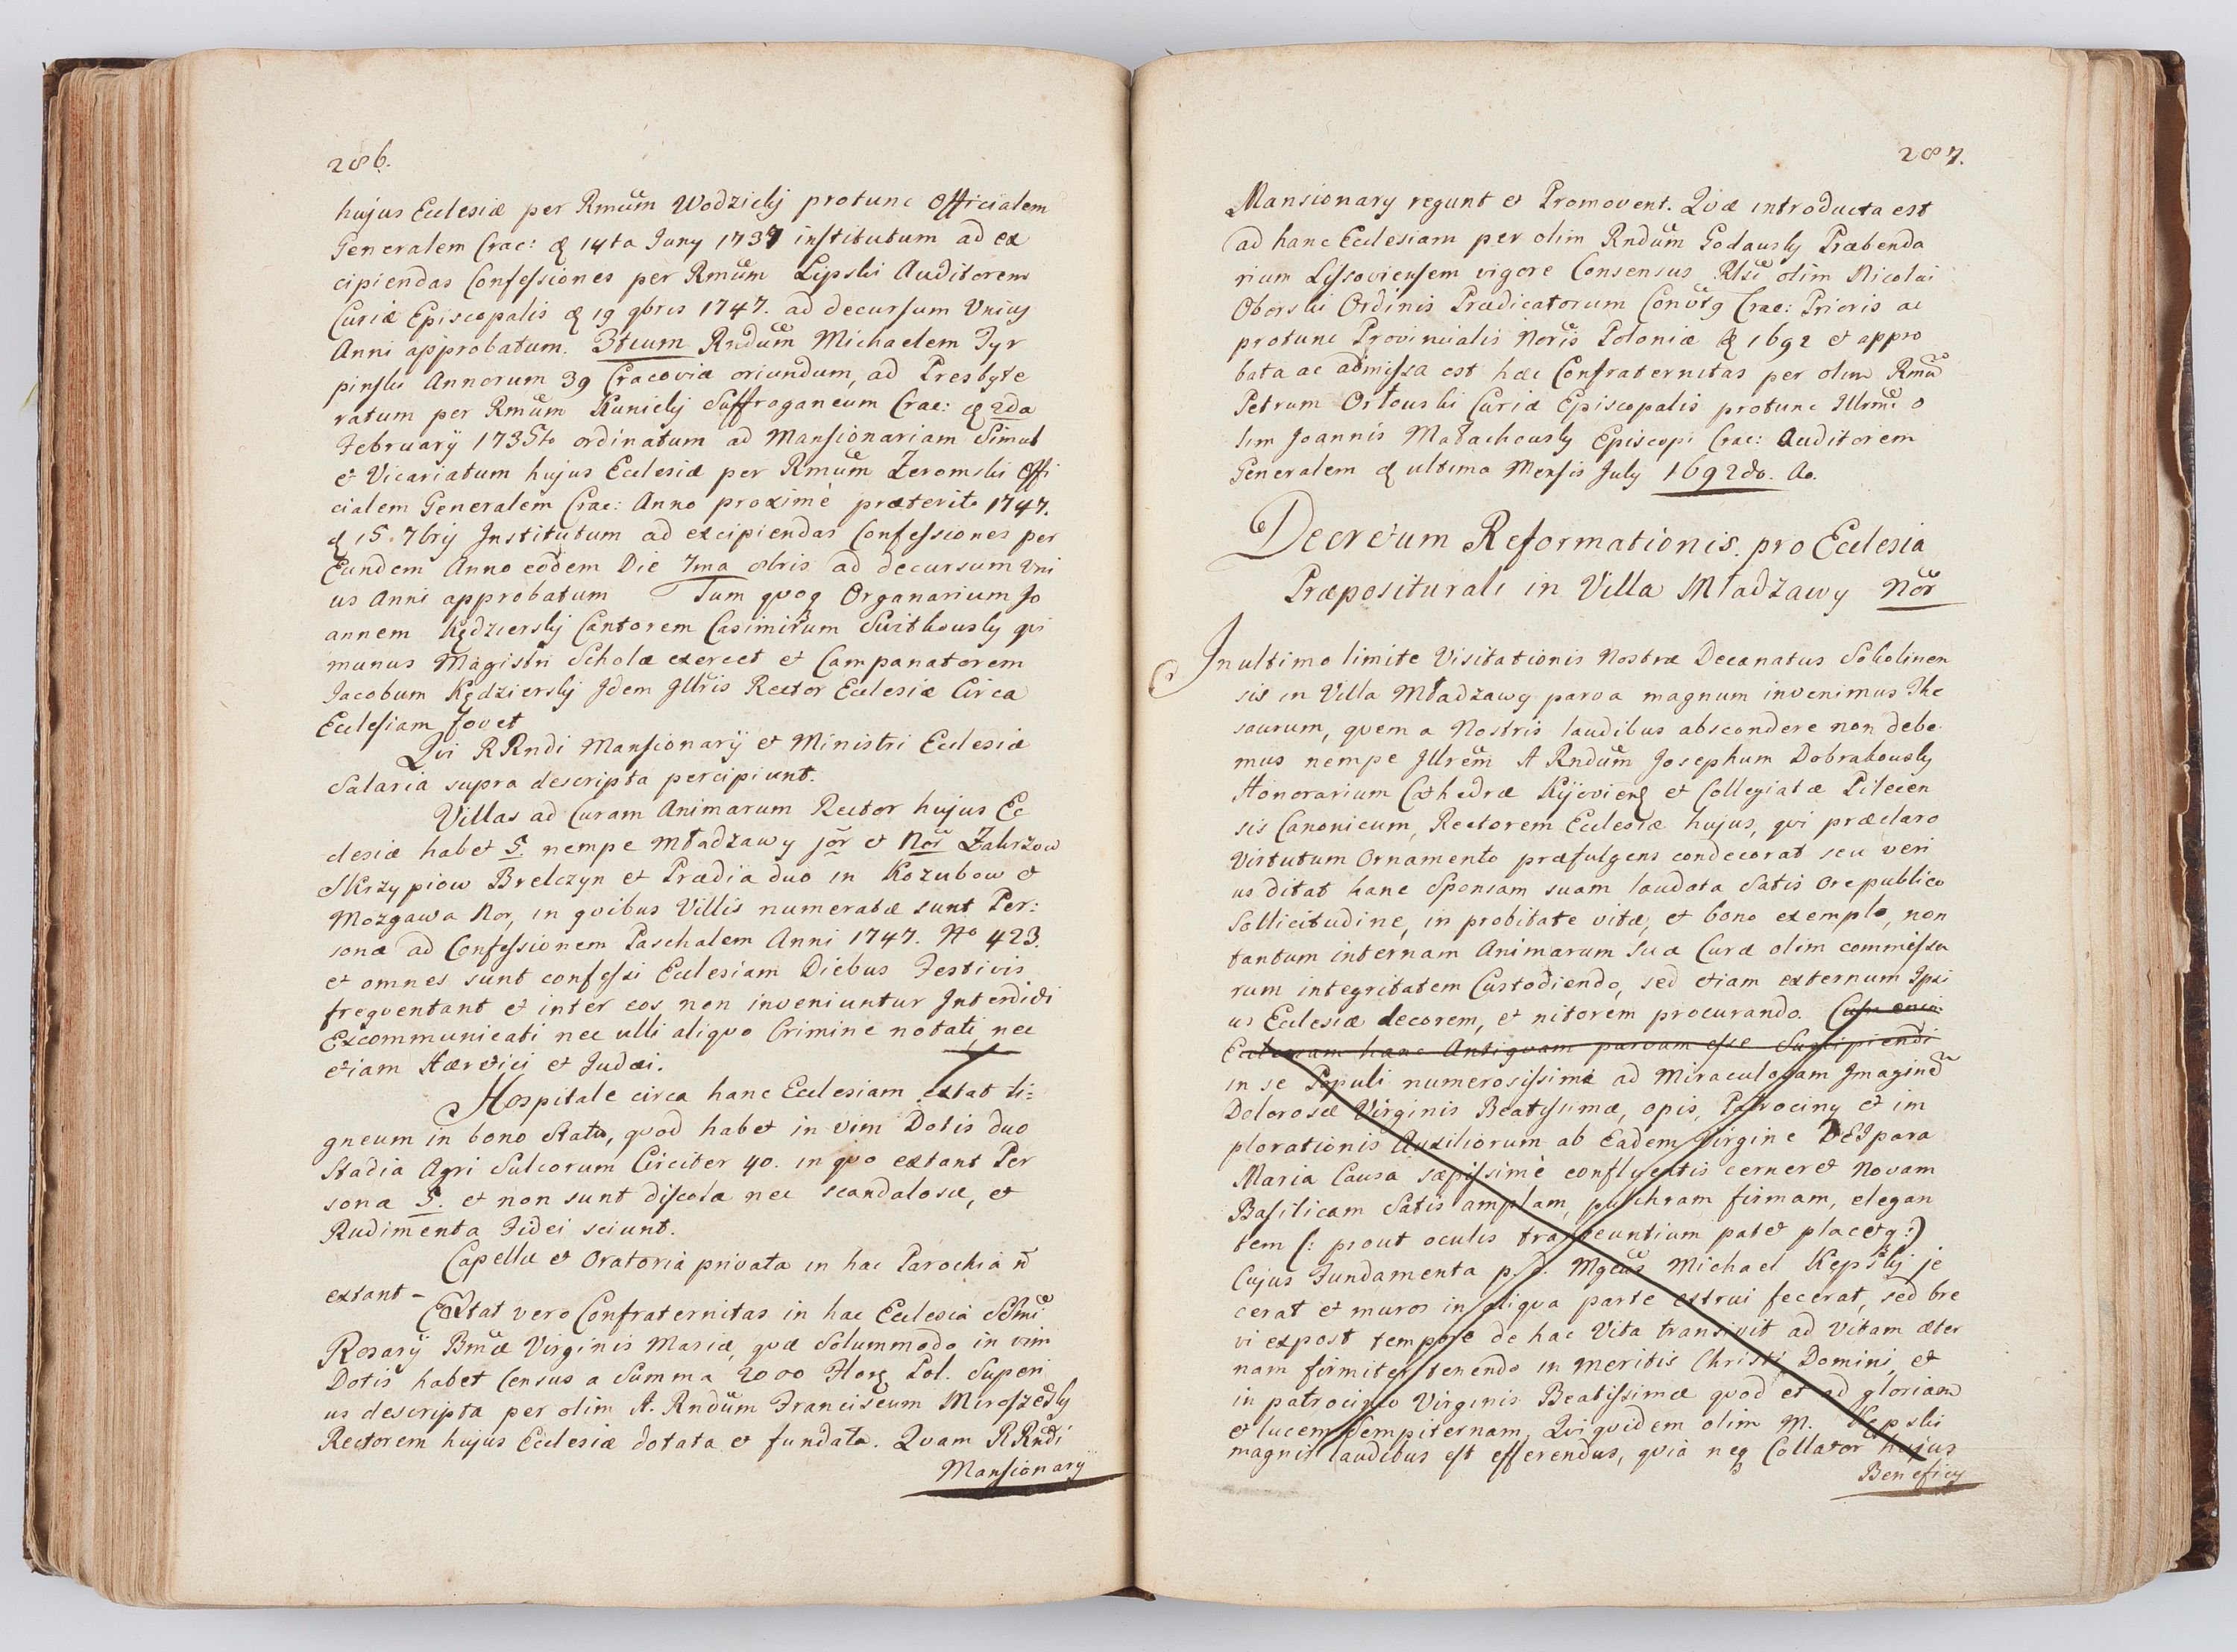 286.
hujus Ecclesiæ per Rmum Wodzicky protunc Officialem
Generalem Crac: d 14ta Juny 1737 institutum ad ex
cipiendas Confessiones per Rmum Lipski Auditorem
Curiæ Episcopalis d 19 9bris 1747. ad decursum Unius
Anni approbatum. 3tium Rndum Michaelem Tyr
pinski Annorum 39 Cracoviæ oriundum, ad Presbyte
ratum per Rmum Kunicky Suffraganeum Crac: d 2da
February 1735to ordinatum ad Mansionariam Simul
et Vicariatum hujus Ecclesiæ per Rmum Zeromski Offi
cialem Generalem Crac: Anno proximè præterito 1747.
d 15. 7bry Institutum ad excipiendas Confessiones per
Eundem Anno eodem Die 7ma 8bris ad decursum Uni
us Anni approbatum Tum quoq Organarium Jo
annem Kędziersky Cantorem Casimirum Swithowsky qvi
munus Magistri Scholæ exercet et Campanatorem
Jacobum Kędziersky Idem Illris Rector Ecclesiæ Circa
Ecclesiam fovet
Qvi RRndi Mansionary et Ministri Ecclesiæ
Salaria supra descripta percipiunt.
Villas ad Curam Animarum Rector hujus Ec
clesiæ habet 5. nempe Mładzawy jor et Nor Zakrzow
Skrzypiow Brelczyn et Prædia duo in Kozubow et
Mozgawa Nor, in qvibus Villis numeratæ sunt Per:
sonæ ad Confessionem Paschalem Anni 1747. No 423.
et omnes sunt confessi Ecclesiam Diebus Festivis
freqventant et inter eos non inveniuntur Interdicti
Excommunicati nec ulli aliqvo Crimine notati, nec
etiam Hæretici et Judæi.
Hospitale circa hanc Ecclesiam extat li=
gneum in bono Statu, qvod habet in vim Dotis duo
Stadia Agri Sulcorum Circiter 40. in qvo extant Per
sonæ 5. et non sunt discolæ nec scandalosæ, et
Rudimenta Fidei sciunt.
Capellæ et Oratoria privata in hac Parochia n
extant -
Extat vero Confraternitas in hac Ecclesia Ssmi
Rosary Bmæ Virginis Mariæ, qvæ Solummodo in vim
Dotis habet Census a Summa 2000 Flor Pol. Superi
us descripta per olim A. Rndum Franciscum Miroszedsky
Rectorem hujus Ecclesiæ dotata et fundata. Qvam RRndi
Mansionary
287.
Mansionary regunt et Promovent. Qvæ introducta est
ad hanc Ecclesiam per olim Rndum Godawsky Præbenda
rium Lissoviensem vigore Consensus Rlsi olim Nicolai
Oborski Ordinis Prædicatorum Convtg Crac: Prioris ac
protunc Provincialis Noris Poloniæ d 1692 et appro
bata ac admissa est hæc Confraternitas per olim Rmu
Petrum Orłowski Curiæ Episcopalis protunc Illrmi o
lim Joannis Małachowsky Episcopi Crac: Auditorem
Generalem d ultima Mensis July 1692do. Ao.
Decretum Reformationis pro Ecclesia
Præpositurali in Villa Mładzawy Nor
In ultimo limite Visitationis Nostræ Decanatus Sokolinen
sis in Villa Mładzawy parva magnum invenimus The
saurum, qvem a Nostris laudibus abscondere non debe
mus nempe Illrem A Rndum Josephum Dobrakowsky
Honorarium Cathedræ Kijoviens et Collegiatæ Pilecen
sis Canonicum, Rectorem Ecclesiæ hujus, qvi præclaro
Virtutum Ornamento præfulgens condecorat seu veri
us ditat hanc Sponsam suam laudata Satis ore publico
Sollicitudine, in probitate vitæ, et bono exemplo, non
tantum internam Animarum Suæ Curæ olim commissa
rum integritatem Custodiendo, sed etiam externum Ipsi
us Ecclesiæ decorem, et nitorem procurando. Cum enim
Ecclesiam hanc Antiqvam parvam esse Suscipiendi
in se Populi numerosissimi ad Miraculosam Imaginem
Dolorosæ Virginis Beatissimæ, opis, Patrociny et im
plorationis Auxiliorum ab Eadem Virgine DEIpara
Maria Causa sæpissimè confluentis cerneret Novam
Basilicam Satis amplam, pulchram firmam, elegan
tem (: prout oculis transeuntium patet placetq :)
Cujus Fundamenta p. d. Mgcus Michael Kępsky je
cerat et muros in aliqua parte extrui fecerat, sed bre
vi expost tempore de hac Vita transivit ad Vitam æter
nam firmiter tenendo in meritis Christi Domini, et
in patrocinio Virginis Beatissimæ qvod et ad gloriam
et lucem Sempiternam, Qviqvidem olim M. Kępski
magnis laudibus est efferendus, qvia neq Collator hujus
Beneficy